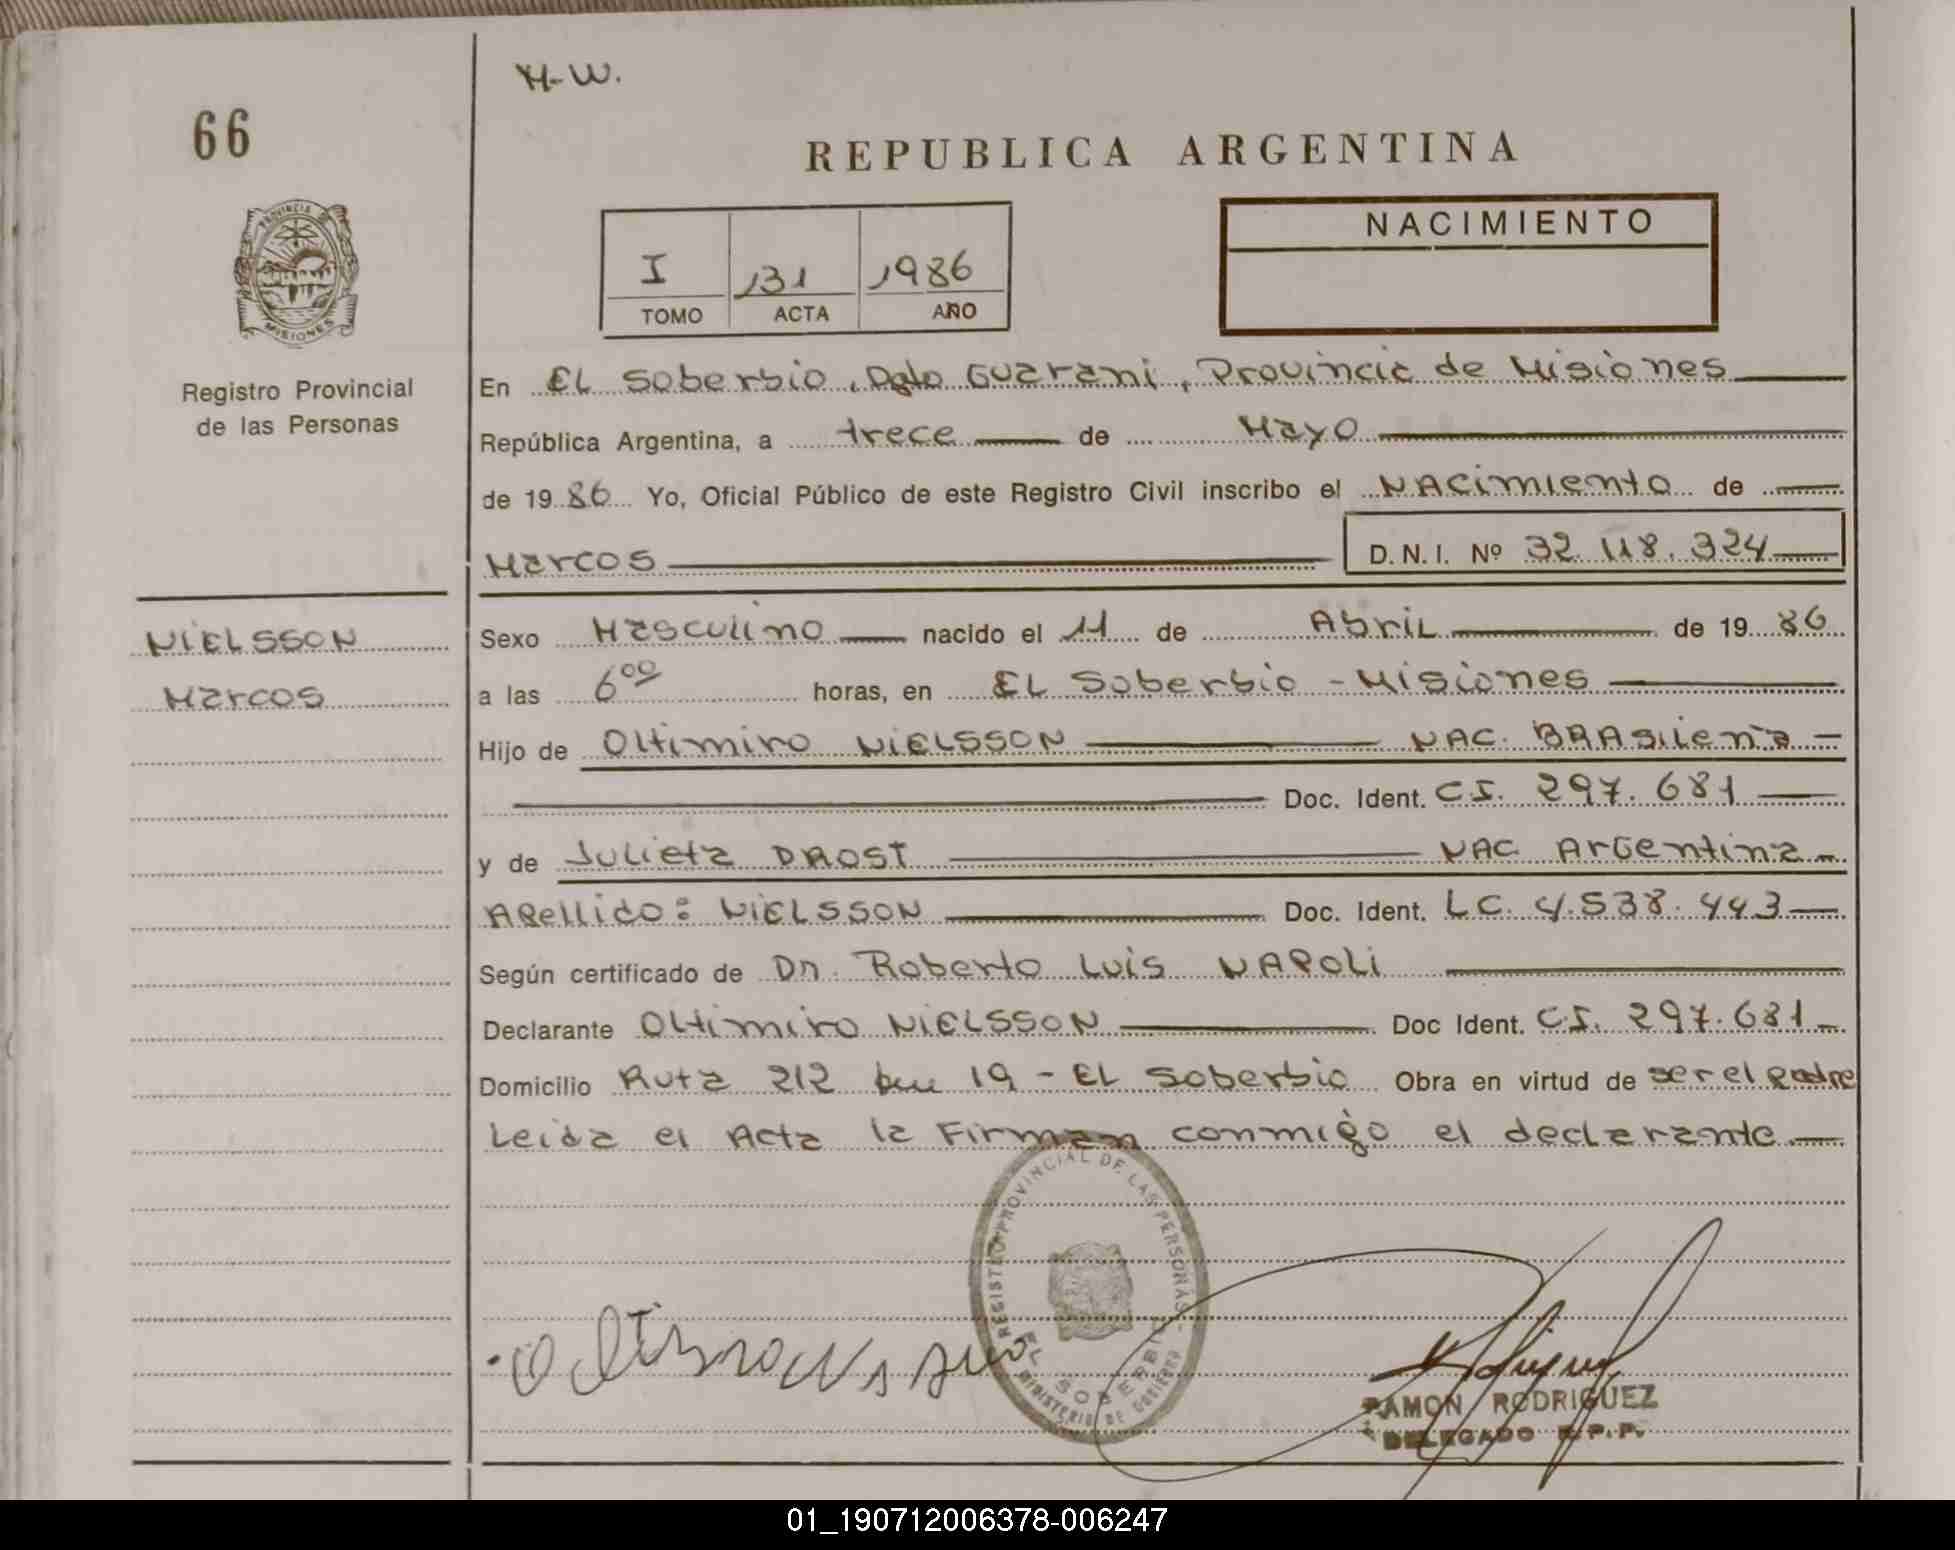 H-W.
66
REPUBLICA ARGENTINA
PROVINCIA DE
MISIONES
I 131 1986
TOMO ACTA AÑO
NACIMIENTO
Registro Provincial
de las Personas
En EL Soberbio, Dpto Guarani, Provincia de Misiones
República Argentina, a trece de Mayo
de 1986 Yo, Oficial Público de este Registro Civil inscribo el NACimiento de
Marcos D.N.I. Nº 32.118.324
NIELSSON
Marcos
Sexo Masculino nacido el 11 de Abril de 1986
a las 6 00 horas, en EL Soberbio - Misiones
Hijo de Oltimiro NIELSSON NAC. BRASilena
Doc. Ident. C.I. 297.681
y de Julieta DROST NAC Argentina
Apellido: NIELSSON Doc. Ident. LC. 4.538.443
Según certificado de Dr. Roberto Luis NAPOLI
Declarante Oltimiro NIELSSON Doc Ident. C.I. 297.681
Domicilio Ruta 212 km 19 - EL Soberbio Obra en virtud de ser el padre
Leida el Acta la Firman conmigo el declarante
REGISTRO PROVINCIAL DE LAS PERSONAS -
EL SOBERBIO
MINISTERIO DE GOBIERNO
RAMON RODRIGUEZ
DELEGADO R.P.P.
01_190712006378-006247